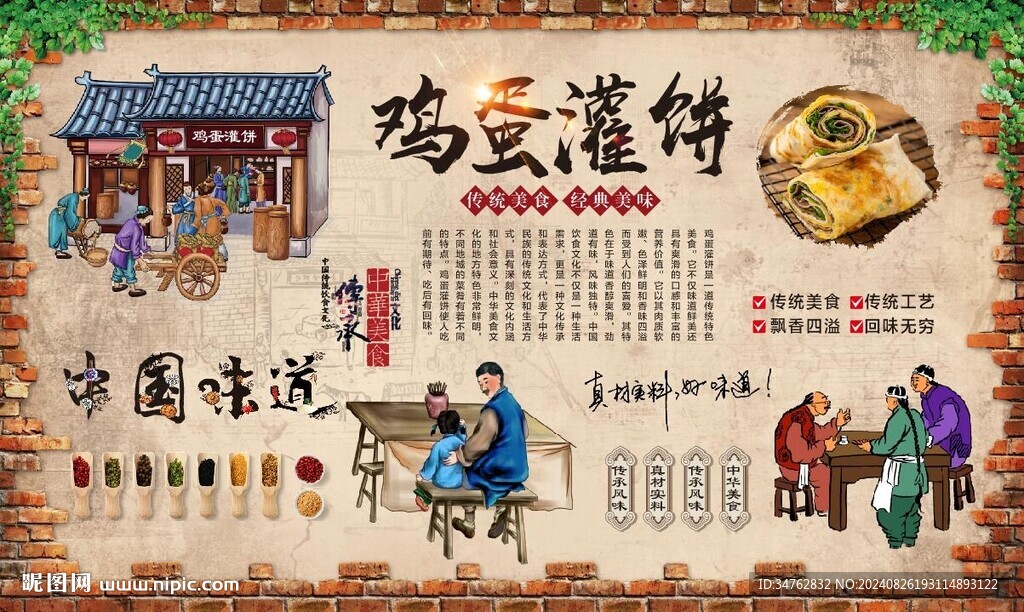 鸡蛋灌饼
鸡蛋灌饼
传统美食 经典美味
鸡蛋灌饼是一道传统特色
美食。它不仅味道鲜美还
具有爽滑的口感和丰富的
营养价值。它以其肉质软
嫩、色泽鲜明和香味四溢
而受到人们的喜爱。其特
色在于味道香醇爽滑，劲
道有味，风味独特。中国
饮食文化不仅是一种生活
需求，更是一种文化传承
和表达方式，代表了中华
民族的传统文化和生活方
式，具有深刻的文化内涵
和社会意义。中华美食文
化的地方特色非常鲜明，
不同地域的菜肴有着不同
的特点。鸡蛋灌饼使人吃
前有期待、吃后有回味。
传统美食 传统工艺
飘香四溢 回味无穷
中国传统饮食文化
傳承
中華美食
文化
中国味道
真材实料,好味道!
传承风味
真材实料
传承风味
中华美食
昵图网 www.nipic.com
ID:34762832 NO:20240826193114893122